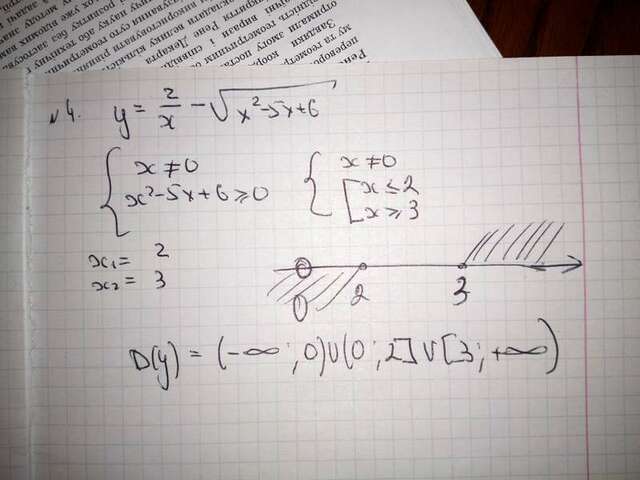 №4. y = 2/x − √(x²−5x+6)
{ x ≠ 0
x²−5x+6 ≥ 0
{ x ≠ 0
[ x ≤ 2
x ≥ 3
x₁ = 2
x₂ = 3
0 2 3
D(y) = (−∞; 0)∪(0; 2]∪[3; +∞)